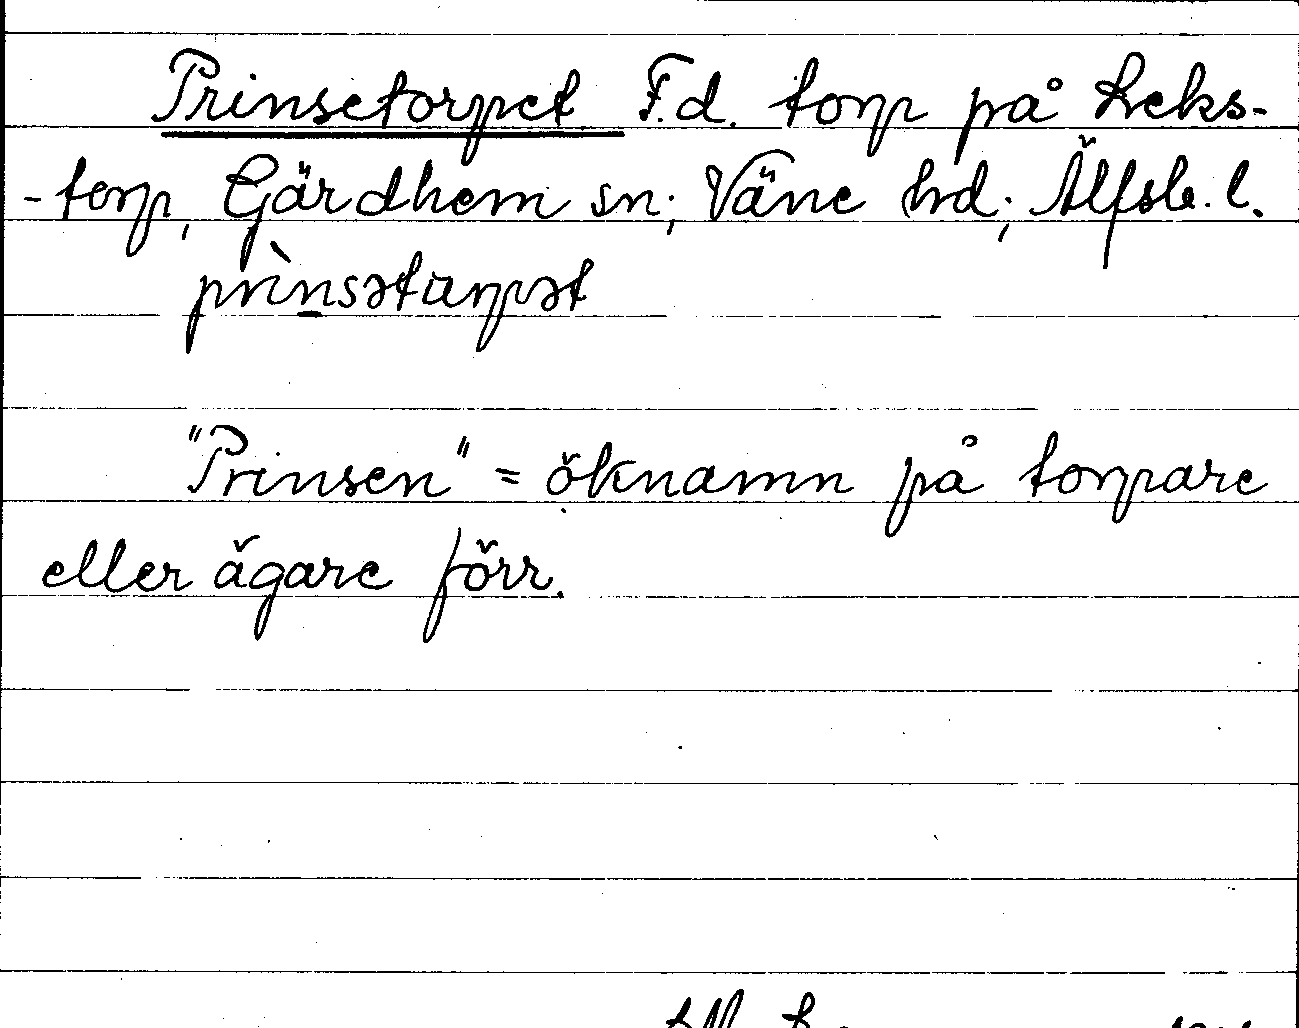 Prinsetorpet F.d. torp på Leks-
-torp, Gärdhem sn; Väne hd; Älfsb. l.
prìnsətɑrpət
"Prinsen" = öknamn på torpare
eller ägare förr.